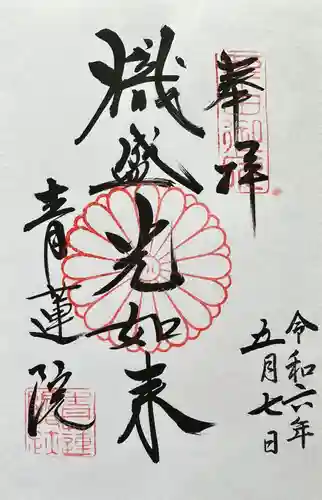 奉拝
令和六年
五月七日
熾盛光如来
青蓮院